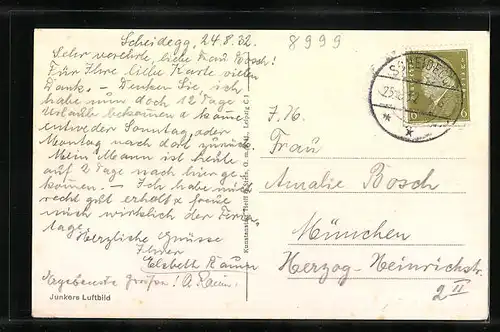 Scheidegg, 24.8.32.
8999
Sehr verehrte, liebe Frau Bosch!
Für Ihre liebe Karte vielen
Dank. – Denken Sie, ich
habe nun doch 12 Tage
Urlaub bekommen & komme
entweder Sonntag, oder
Montag nach dort zurück.
Mein Mann ist heute
auf 2 Tage nach hier ge-
kommen. – Ich habe mich
recht gut erholt & freue
mich wirklich der Ferien-
tage.
Herzliche Grüsse
Ihrer
Elsbeth
Ergebenste Grüße!
Junkers Luftbild
Leipzig C 1
SCHEIDEGG
6 6
Frau
Amalie Bosch
München
Herzog-Heinrichstr.
2 II